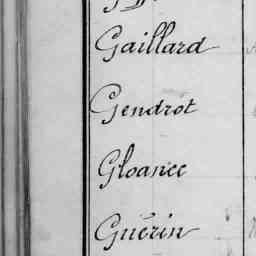 Gaillard
Gendrot
Gloanec
Guérin